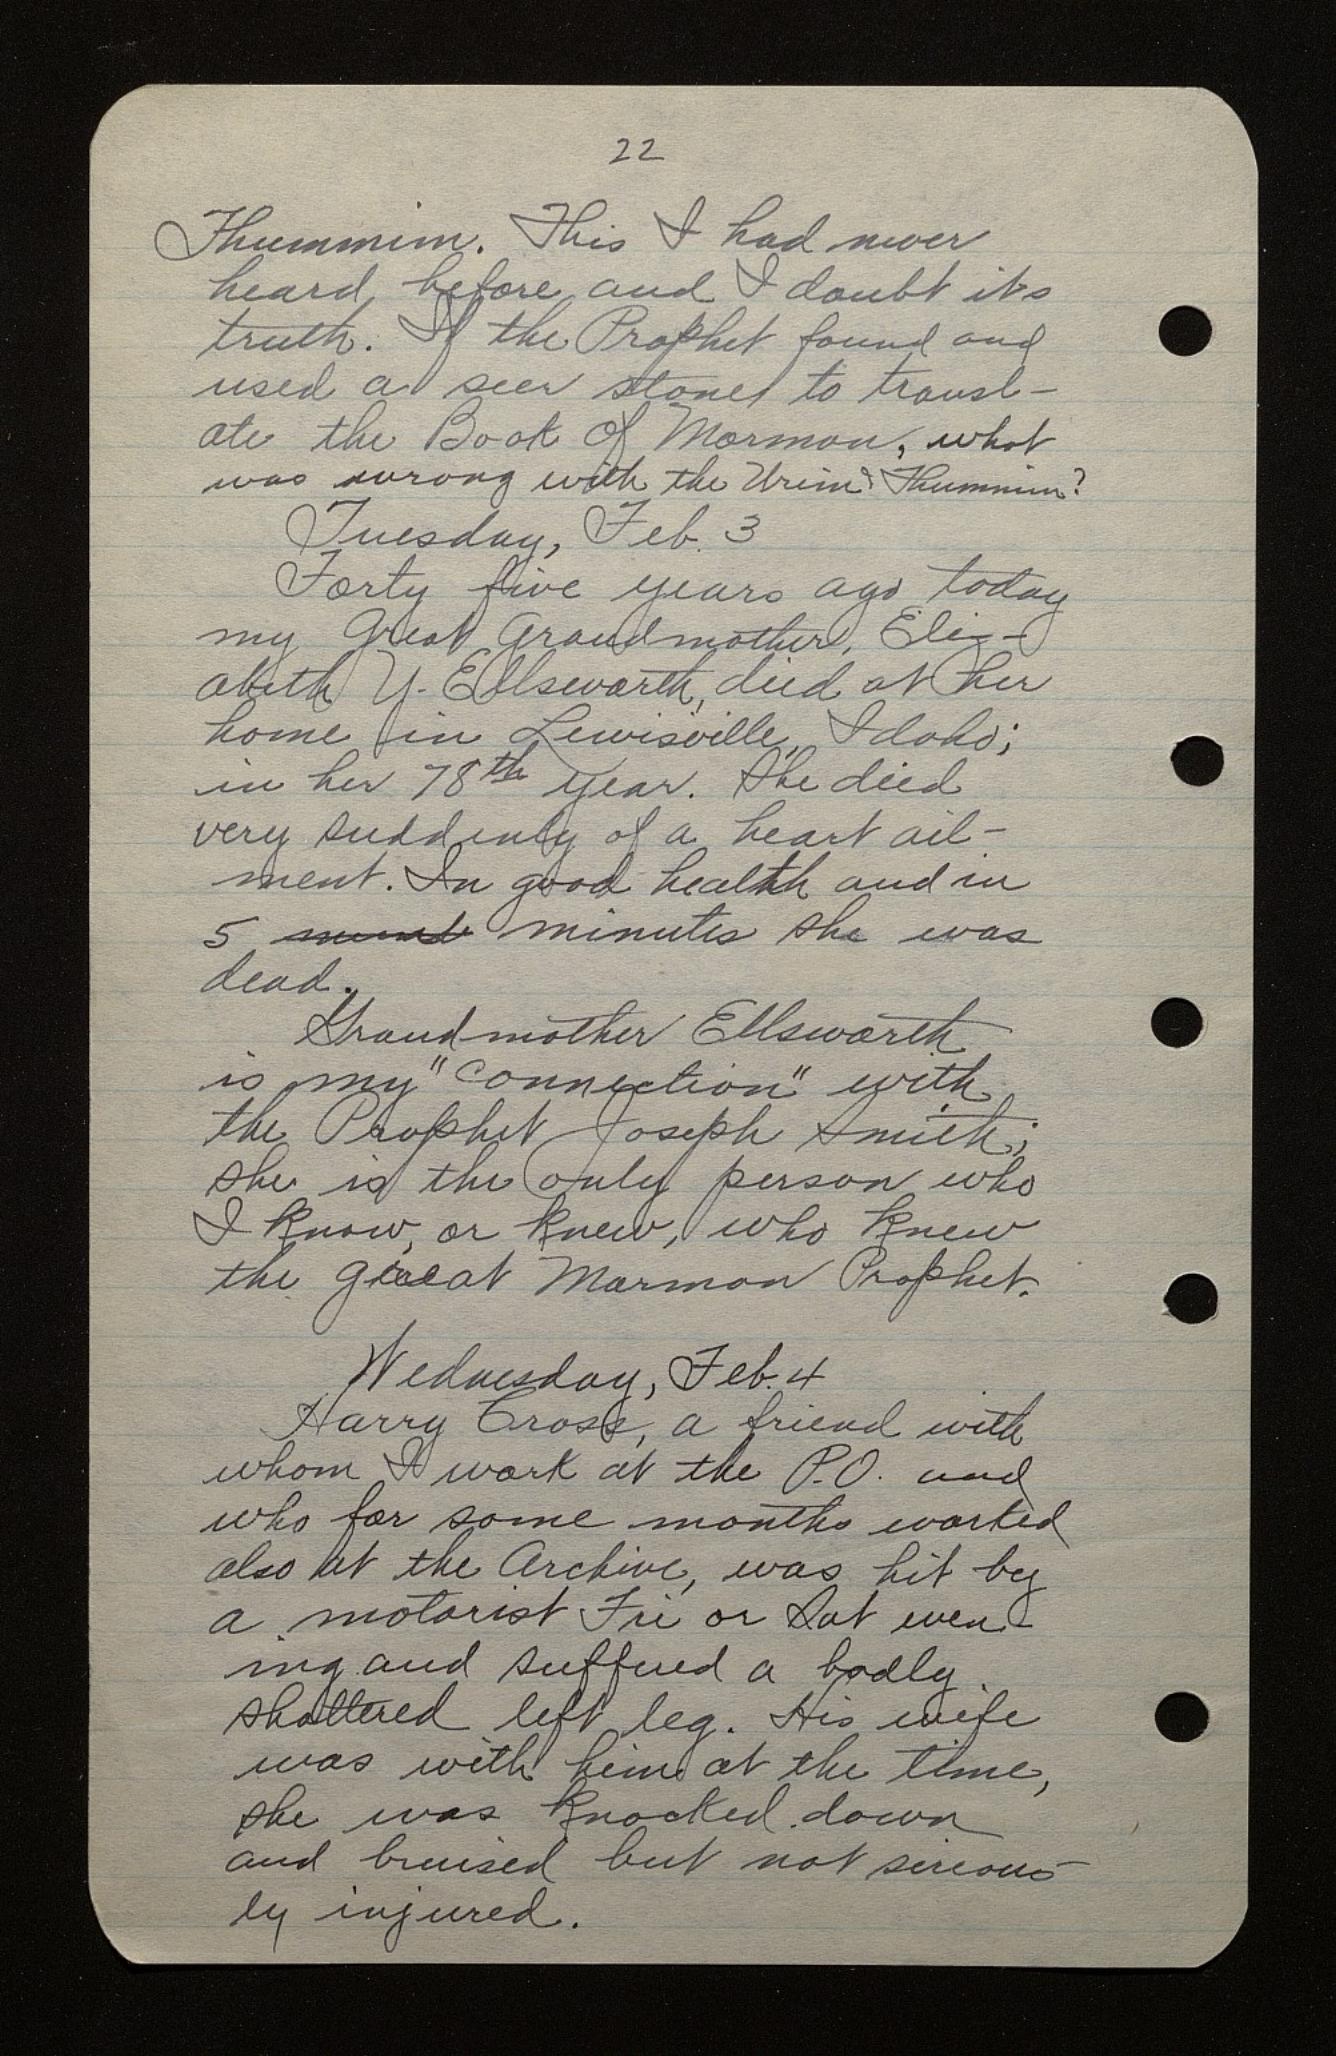 22
Thummim. This I had never
heard before and I doubt its
truth. If the Prophet found and
used a seer stone to transl-
ate the Book of Mormon, what
was wrong with the Urim & Thummim?
Tuesday, Feb. 3
Forty five years ago today
my Great Grandmother, Eliz-
abeth Y. Ellsworth, died at her
home in Lewisville, Idaho;
in her 78th year. She died
very suddenly of a heart ail-
ment. In good health and in
5 minutes she was
dead.
Grandmother Ellsworth
is my "connection" with
the Prophet Joseph Smith;
she is the only person who
I know, or knew, who knew
the great Mormon Prophet.
Wednesday, Feb. 4
Harry Cross, a friend with
whom I work at the P.O. and
who for some months worked
also at the Archive, was hit by
a motorist Fri or Sat even-
ing and suffered a badly
shattered left leg. His wife
was with him at the time,
she was knocked down
and bruised but not serious-
ly injured.